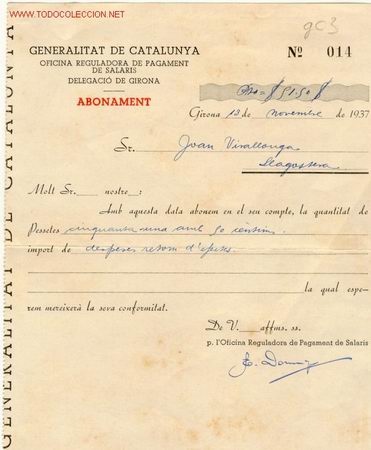 www.TODOCOLECCION.NET
gc3
GENERALITAT DE CATALUNYA
OFICINA REGULADORA DE PAGAMENT
DE SALARIS
DELEGACIÓ DE GIRONA
ABONAMENT
Nº 014
51.50
Girona 13 de novembre de 1937
Sr. Joan Vivallonga
Llagostera
Molt Sr. nostre:
Amb aquesta data abonem en el seu compte, la quantitat de
Pessetes cinquanta una amb 50 cèntims.
import de despeses retorn d'efectes
la qual espe-
rem mereixerà la seva conformitat.
De V. affms. ss.
p. l'Oficina Reguladora de Pagament de Salaris
GENERALITAT DE CATALUNYA